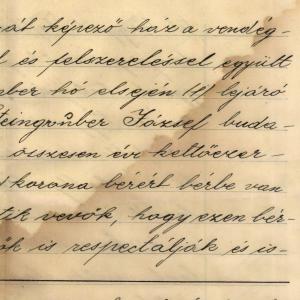 át képező ház a vendég-
és felszereléssel együtt
ber hó elsején (1) lejáró
Steingruber József buda-
összesen évi kettőezer-
korona bérért bérbe van
tik vevők, hogy ezen bér-
ők is respectálják és is-